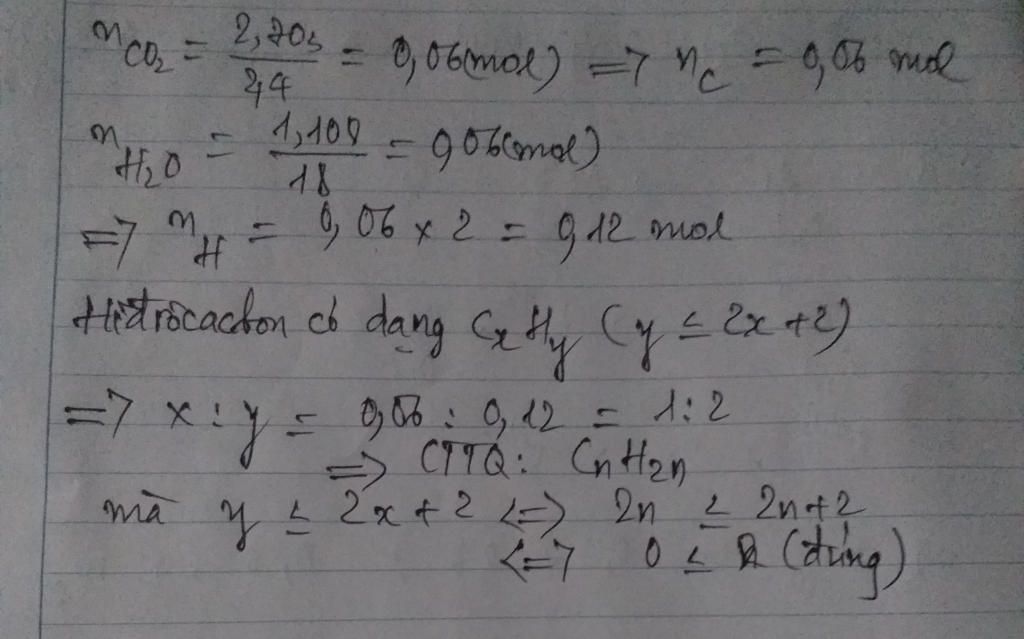 nCO₂ = 2,703/44 = 0,06(mol) => nC = 0,06 mol
nH₂O = 1,109/18 = 0,06(mol)
=> nH = 0,06 x 2 = 0,12 mol
Hiđrocacbon có dạng CxHy (y ≤ 2x+2)
=> x : y = 0,06 : 0,12 = 1:2
=> CTTQ: CnH2n
mà y ≤ 2x + 2 <=> 2n ≤ 2n+2
<=> 0 ≤ 2 (đúng)